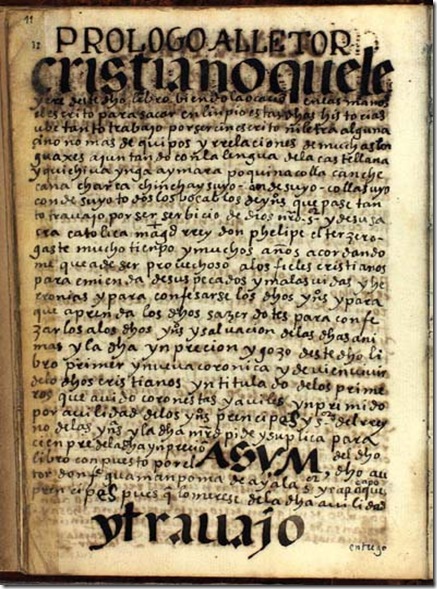 11
PROLOGO ALLETOR
cristiano que le
yere deste dho libro biendo la ocacion en las manos
el escrito para sacar en linpio estas dhas historias
ube tanto trabajo por ser cin escrito ni letra alguna
cino no mas de quipos y rrelaciones de muchos len
guaxes ajuntando con la lengua de la castellana
y quichiua ynga aymara poquina colla canche
cana charca chinchaysuyo andesuyo collasuyo
condesuyo todos los bocablos de yns que pase tan
to trauajo por ser serbicio de dios nro sr y de su sa
cra catolica magd rrey don phelipe el terzero
gaste mucho tienpo y muchos años acordando
me que a de ser prouechoso a los fieles cristianos
para emienda de sus pecados y malas uidas y he
rronias y para confesarse los dhos yns y para
que aprenda los dhos sazerdotes para confe
zar los a los dhos yns y saluacion de las dhas ani
mas y la dha ynprecion y gozo deste dho li
bro primer y nueua coronica y de uien uiuir
de los dhos cristianos yntitulado de los prime
ros que auido coronistas y auiles ynprimido
por auilidad de los yns prencipes y srs del rrey
no de las yns y la dha mrd pide y suplica para
cienpre de la dha ynprecio del dho
libro conpuesto por el ASVM dho au
tor don fe guaman poma de ayala sr y capac que
prencipes pues que lo merese de la dha auilidad
y trauajo